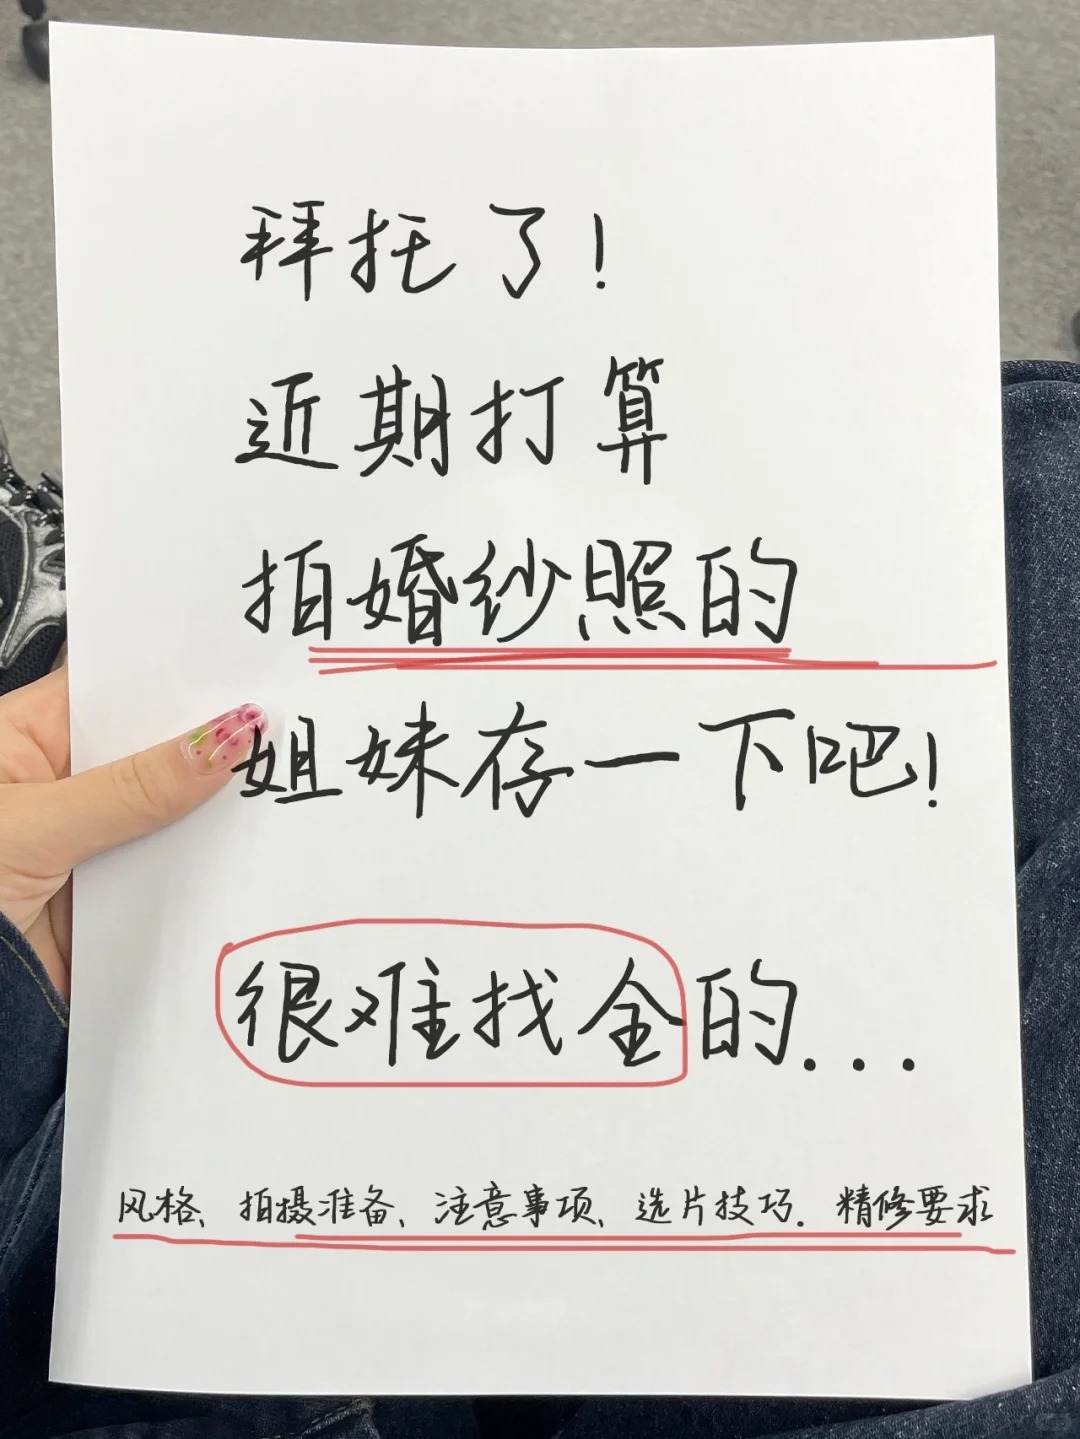 拜托了!
近期打算
拍婚纱照的
姐妹存一下吧!
很难找全的...
风格、拍摄准备、注意事项、选片技巧、精修要求